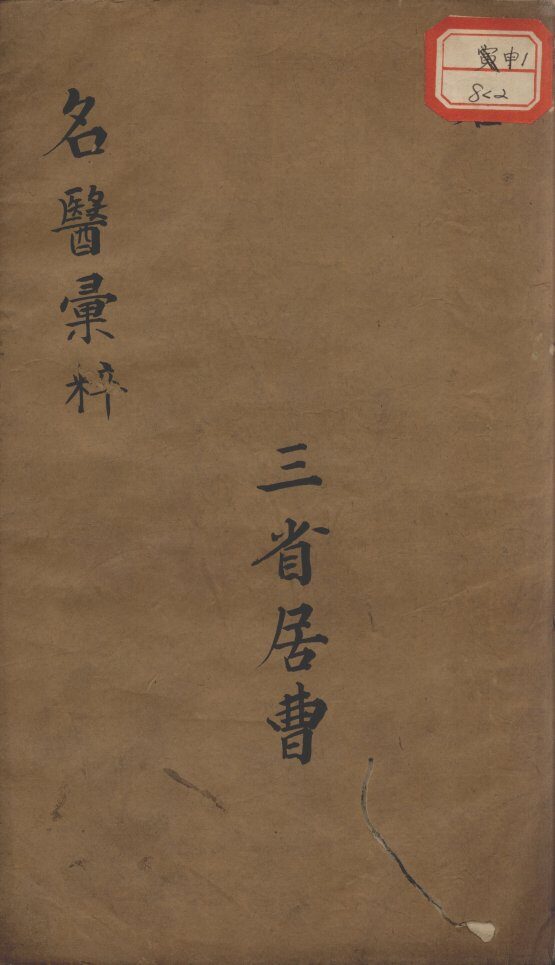 名醫彙粹
三省居曹
寅申1
8<2